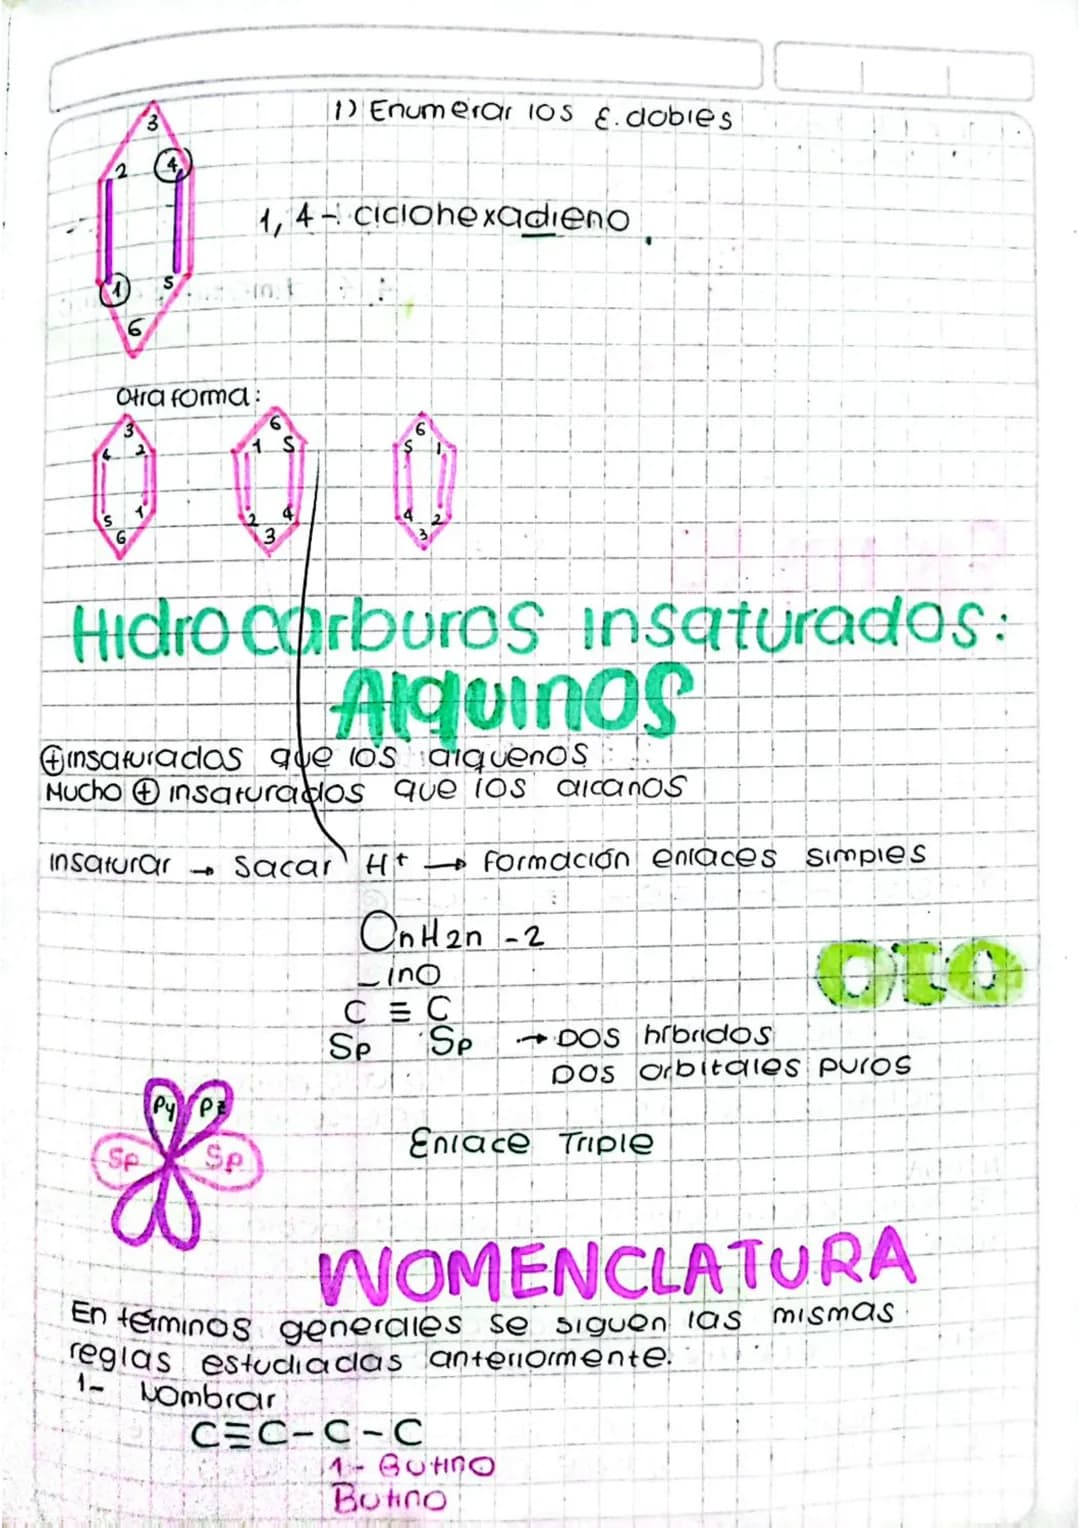 1) Enumerar los E. dobles
3
2 4
1, 4 - ciclohexadieno
1 5
6
Otra forma:
3
4 2
5 1
6
6
1 5
2 4
3
6
5 1
4 2
3
Hidrocarburos insaturados:
Alquinos
⊕insaturados que los alquenos
Mucho ⊕ insaturados que los alcanos
Insaturar → Sacar H+ → Formación enlaces simples
CnH2n -2
-ino
C ≡ C
Sp Sp → Dos híbridos
Dos orbitales puros
Py Pz
Sp Sp
Enlace Triple
NOMENCLATURA
En términos generales se siguen las mismas
reglas estudiadas anteriormente.
1- Nombrar
C≡C-C-C
1- Butino
Butino